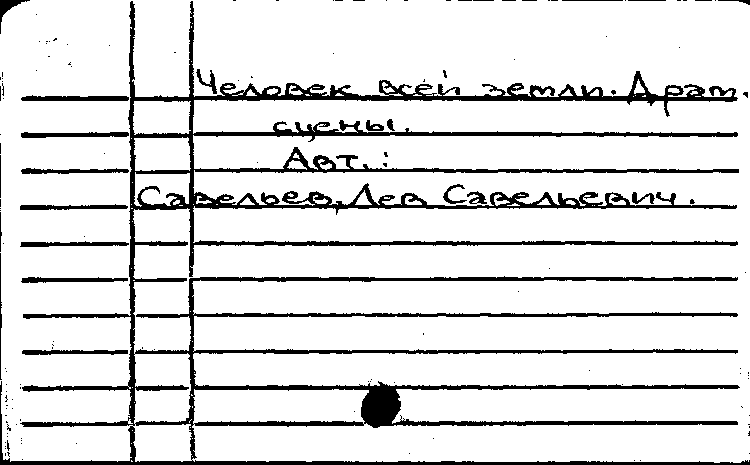 Человек всей земли. Драм.
сцены.
Авт.:
Савельев, Лев Савельевич.